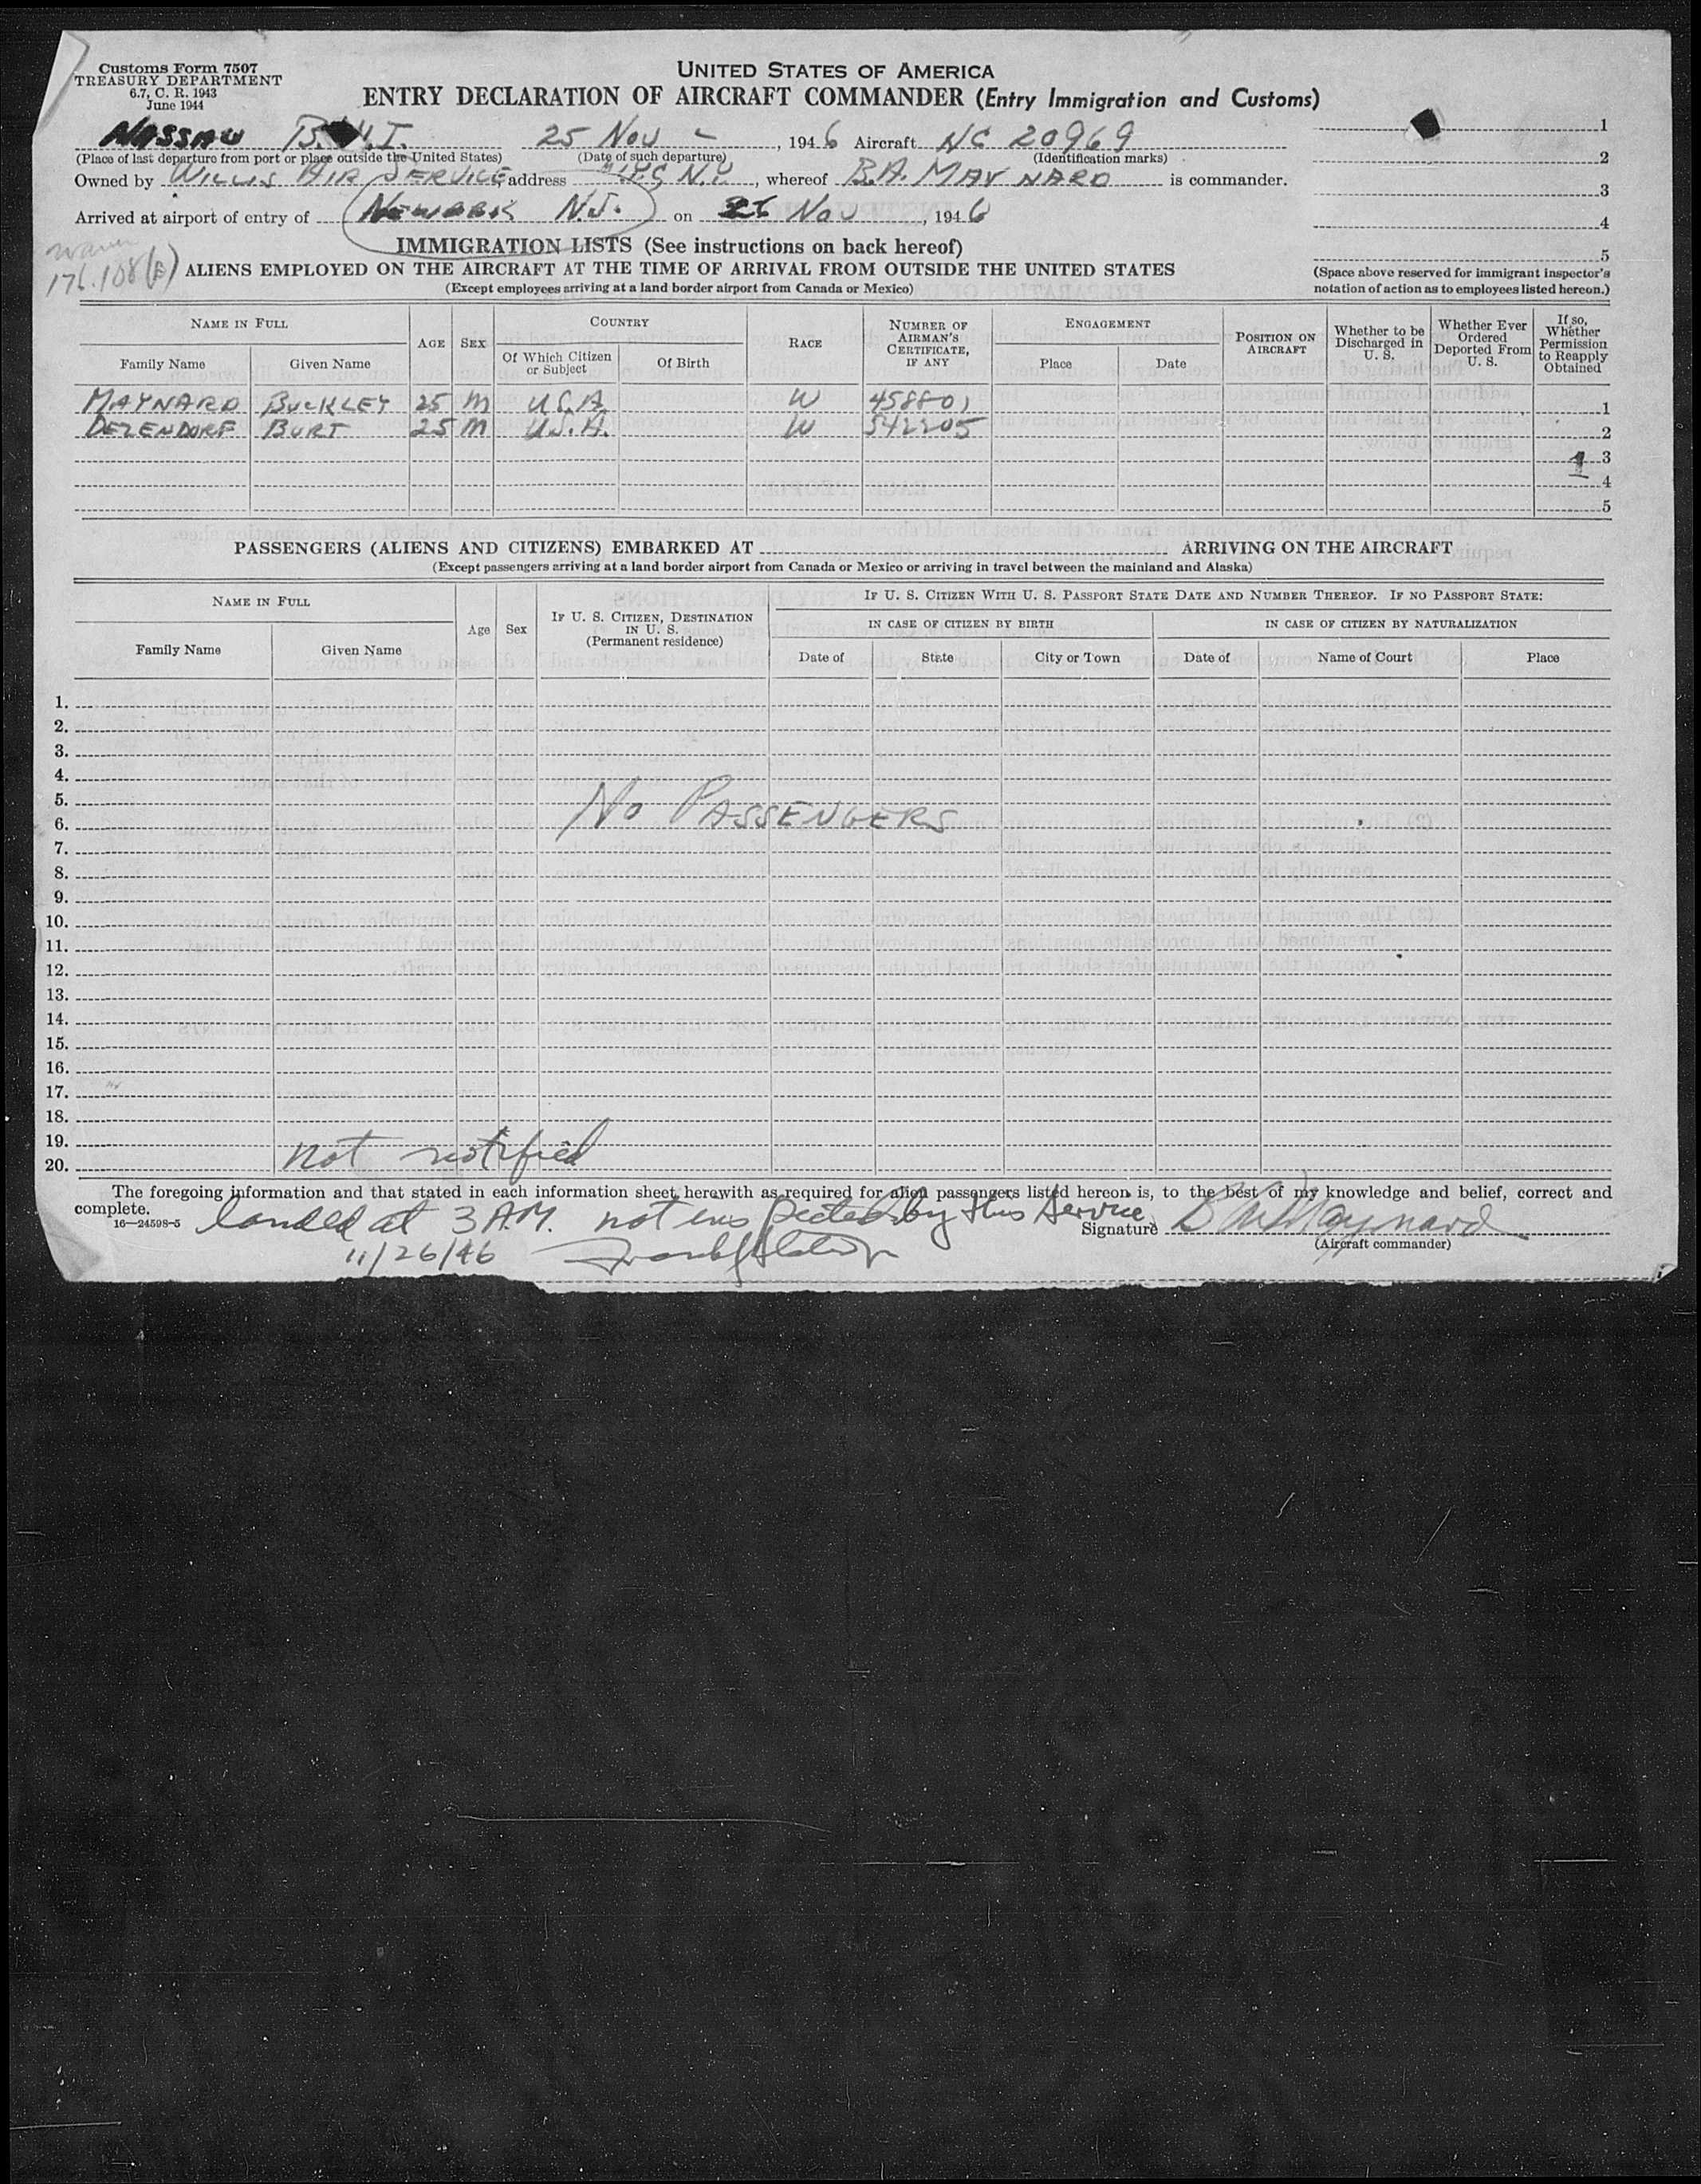 Customs Form 7507
TREASURY DEPARTMENT
6.7, C. R. 1943
June 1944
UNITED STATES OF AMERICA
ENTRY DECLARATION OF AIRCRAFT COMMANDER (Entry Immigration and Customs)
NASSAU B.W.I. 25 NOV - , 1946 Aircraft NC 20969
(Place of last departure from port or place outside the United States) (Date of such departure) (Identification marks)
Owned by WILLIS AIR SERVICE, address N.Y., whereof B.A. MAYNARD is commander.
Arrived at airport of entry of NEWARK N.J. on Nov, 1946
1
2
3
4
5
(Space above reserved for immigrant inspector's
notation of action as to employees listed hereon.)
176.108(B)
IMMIGRATION LISTS (See instructions on back hereof)
ALIENS EMPLOYED ON THE AIRCRAFT AT THE TIME OF ARRIVAL FROM OUTSIDE THE UNITED STATES
(Except employees arriving at a land border airport from Canada or Mexico)
NAME IN FULL AGE SEX COUNTRY RACE NUMBER OF AIRMAN'S CERTIFICATE, IF ANY ENGAGEMENT POSITION ON AIRCRAFT Whether to be Discharged in U. S. Whether Ever Ordered Deported From U. S. If so, Whether Permission to Reapply Obtained
Family Name Given Name Of Which Citizen or Subject Of Birth Place Date
MAYNARD BUCKLEY 25 M U.S.A. W 458801 1
DEZENDORF BURT 25 M U.S.A. W 542205 2
1 3
4
5
PASSENGERS (ALIENS AND CITIZENS) EMBARKED AT ARRIVING ON THE AIRCRAFT
(Except passengers arriving at a land border airport from Canada or Mexico or arriving in travel between the mainland and Alaska)
NAME IN FULL Age Sex IF U. S. CITIZEN, DESTINATION IN U. S. (Permanent residence) IF U. S. CITIZEN WITH U. S. PASSPORT STATE DATE AND NUMBER THEREOF. IF NO PASSPORT STATE:
IN CASE OF CITIZEN BY BIRTH IN CASE OF CITIZEN BY NATURALIZATION
Family Name Given Name Date of State City or Town Date of Name of Court Place
1.
2.
3.
4.
5.
NO PASSENGERS
6.
7.
8.
9.
10.
11.
12.
13.
14.
15.
16.
17.
18.
19.
not notified
20.
The foregoing information and that stated in each information sheet herewith as required for alien passengers listed hereon is, to the best of my knowledge and belief, correct and
complete.
16—24598-5
landed at 3 A.M. not inspected by this service
Signature B A Maynard
(Aircraft commander)
11/26/46